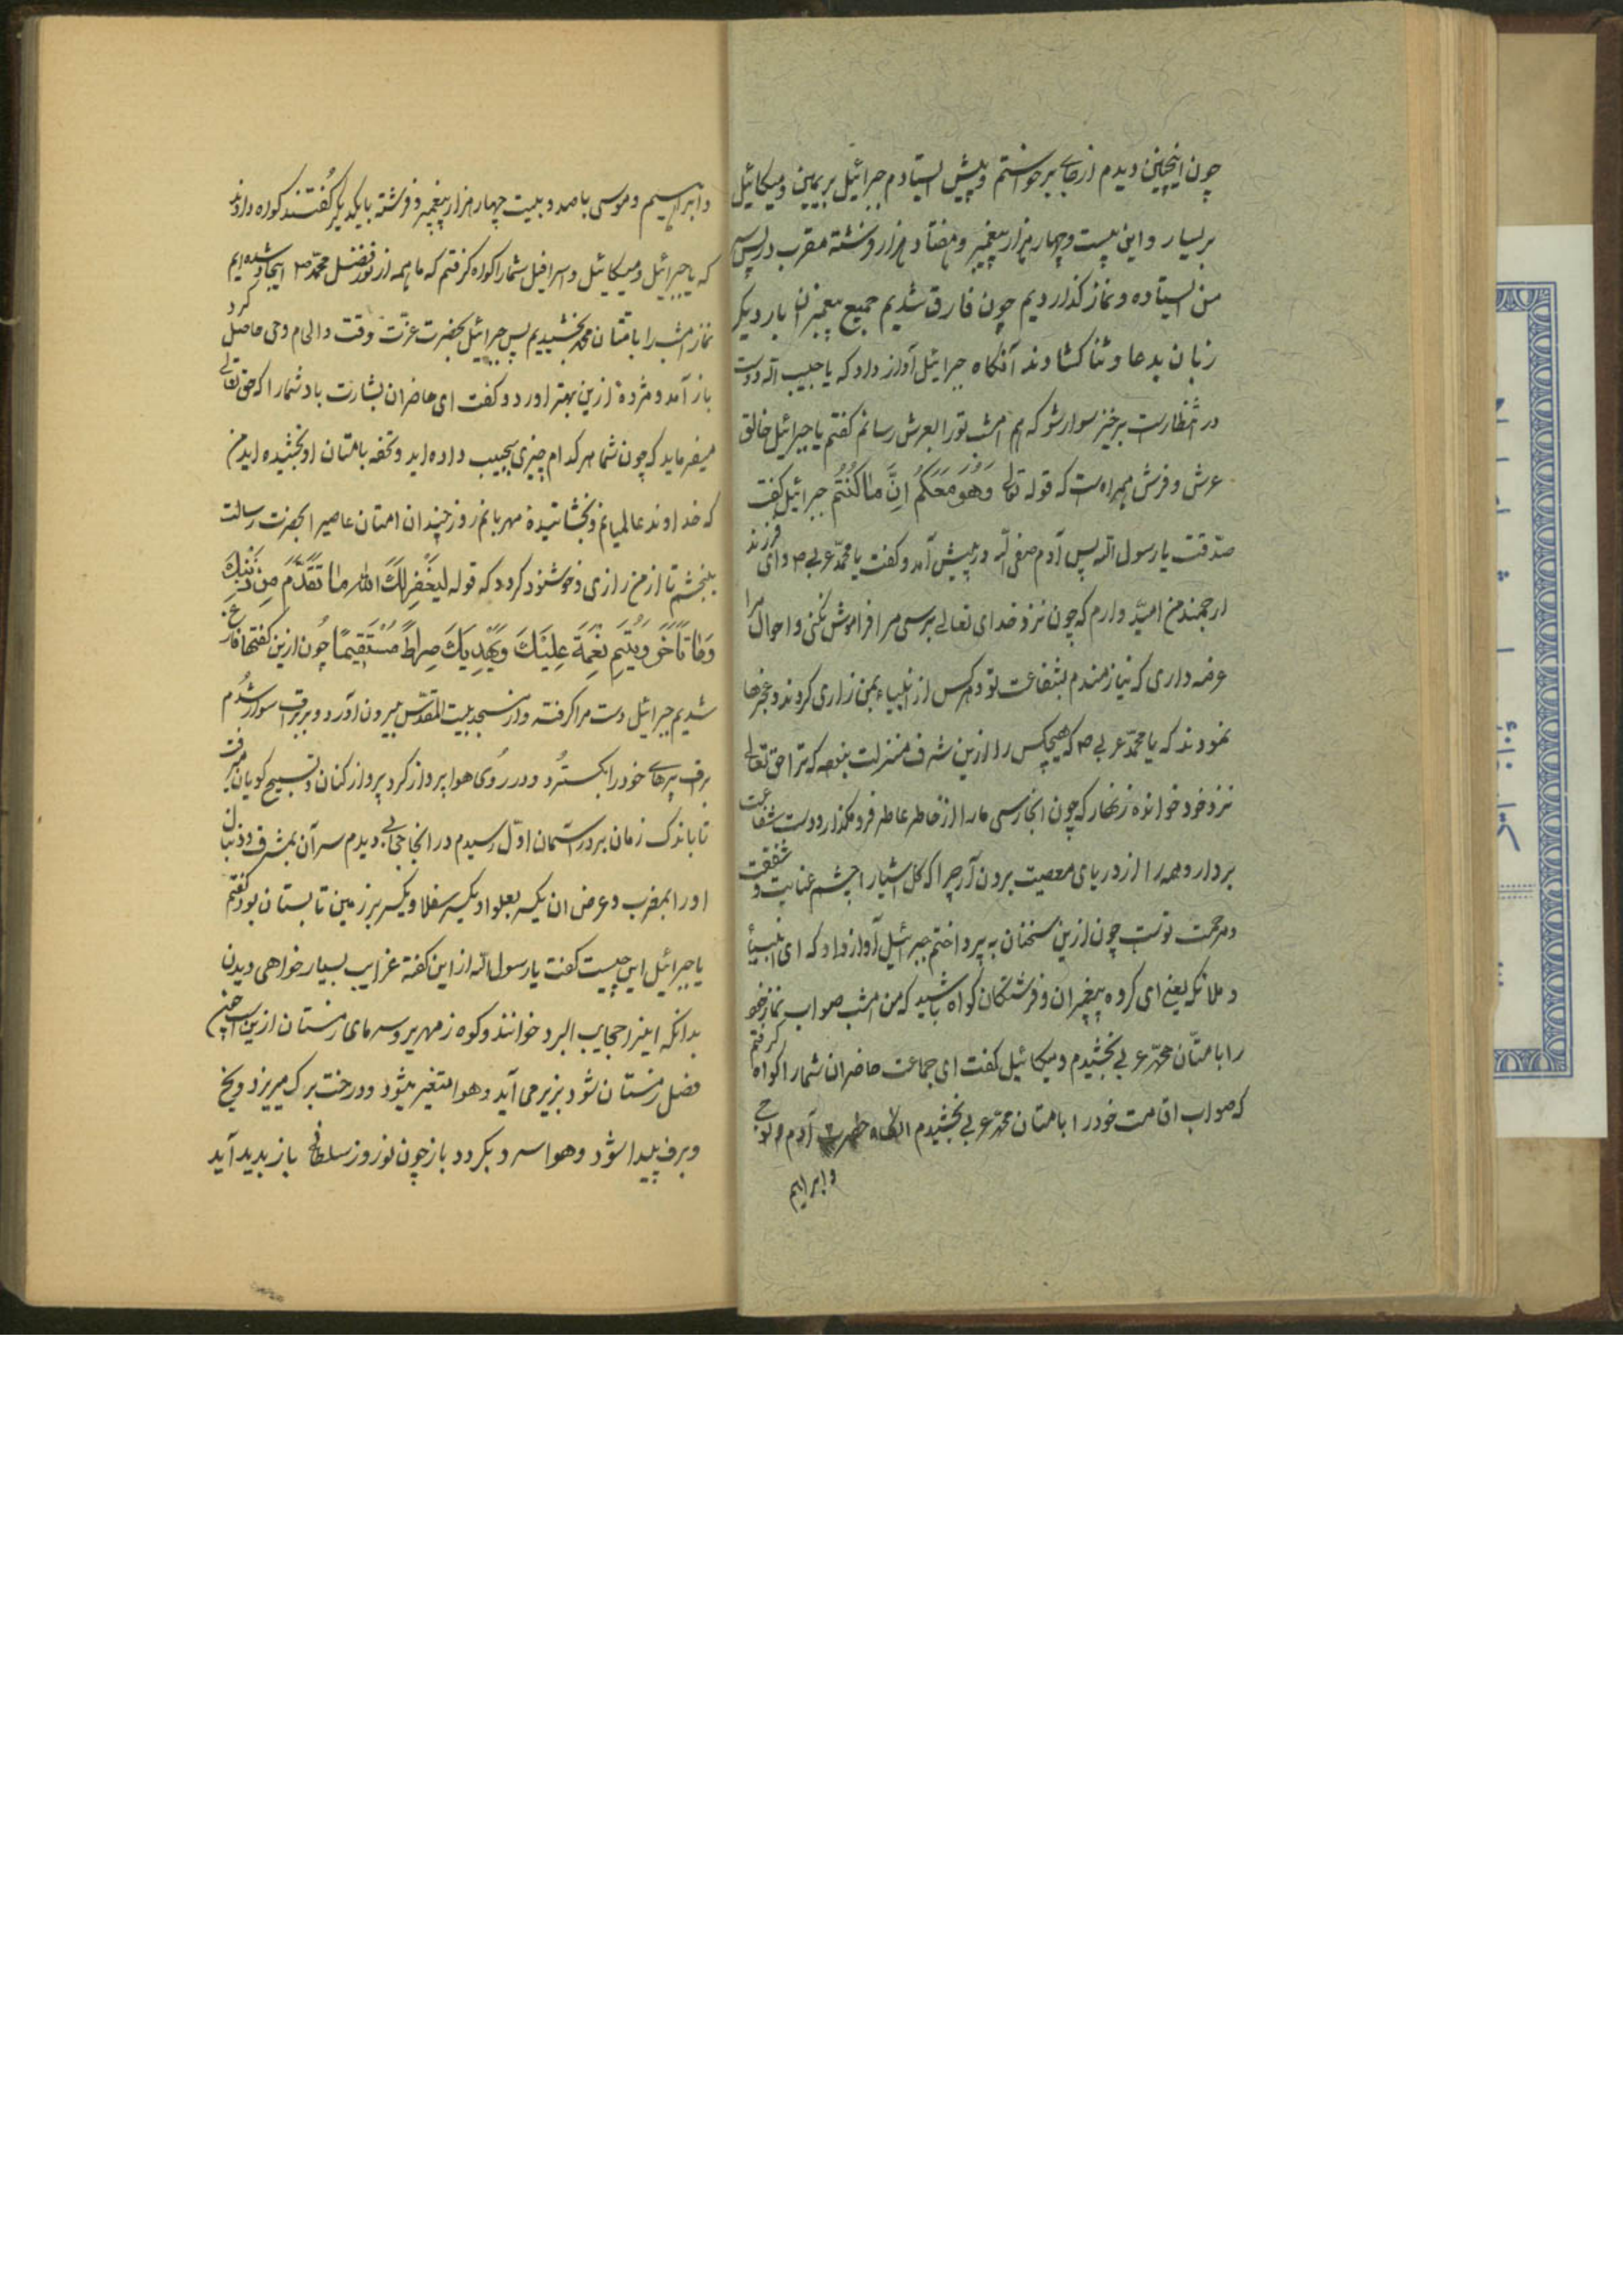 چون اینچنین دیدم از جای برخواستم و پیش ایستادم جبرائیل بریمین و میکائیل
بریسار و این بیست و چهار هزار پیغمبر و هفتاد هزار فرشته مقرب در پس
من ایستاده و نماز گذاردیم چون فارق شدیم جمیع پیغمبران بار دیگر
زبان بدعا و ثنا کشادند آنگاه جبرائیل آواز داد که یا حبیب الله دوست
در انتظار است برخیز سوار شو که هم امشب تو را بعرش رسانم کفتم یا جبرائیل خالق
عرش و فرش همراه است که قوله تعالی وَهُوَ مَعَکُم اینَ ما کُنتُم جبرائیل کفت
صدقت یا رسول الله پس آدم صفی الله در پیش آمد و کفت یا محمد عربی ص وای فرزند
ارجمند من امید دارم که چون نزد خدای تعالی برسی مرا فراموش نکنی و احوال مرا
عرضه داری که نیازمندم بشفاعت تو و هر کس از انبیاء بمن زاری کردند و عجزها
نمودند که یا محمد عربی ص که هیچکس را ازین شرف منزلت نبوده که ترا حق تعالی
نزد خود خوانده زنهار که چون انجا رسی ما را از خاطر عاطر فرو مگذار و دست شفاعت
بردار و همه را از دریای معصیت برون آر چرا که کل اشیا را چشم عنایت و شفقت
و مرحمت توست چون ازین سخنان به پرداختم جبرئیل آواز داد که ای انبیأ
و ملائکه یعنی ای کروه پیغمبران و فرشتکان کواه باشید که من امشب صواب نماز خود
را بامتان محمد عربی بخشیدم و میکائیل کفت ای جماعت حاضران شما را کواه کرفتم
که صواب اقامت خود را بامتان محمد عربی بخشیدم آدم و نوح
و ابراهیم
و ابراهیم و موسی با صد و بیست چهار هزار پیغمبر و فرشته با یکدیگر کُفتند کواه دارند
که یا جبرائیل و میکائیل و اسرافیل شما را کواه کرفتم که ما همه از نور فضل محمد ص ایجاد شده‌ایم
نماز امشب را بامتان محمد بخشیدیم پس جبرائیل بحضرت عزّت وقت و الهام وحی حاصل کرد
باز آمد و مژدهٔ ازین بهتر اورد و کفت ای حاضران بشارت باد شما را که حق تعالی
میفرماید که چون شما هر کدام چیزی بحبیب داده‌اید و تحفه بامتان او بخشیده‌اید من
که خداوند عالمیانم و بخشانیدهٔ مهربانم روز چندان امتان عاصیر الحضرت رسالت
ببخشم تا از من رازی و خوشنود کردد که قوله لیَغفِر لَکَ الله ما تَقَدَّمَ مِن ذَنبِکَ
وَما تَاَخَّرَ وَیُتِمَ نِعمَةَ عَلَیکَ وَیَهدِیَکَ صِراطً مُستَقیماً چون ازین کفتها فارغ
شدیم جبرائیل دست مرا کرفته و از مسجد بیت المقدس بیرون آورد و بر براق سوار شدم
براق پرهای خود را بکسترد و در روی هوا پرواز کرد پرواز کنان و تسبیح کویان میرفت
تا باندک زمان بدر آسمان اوّل رسیدم در انجا حجابی دیدم سر آن بمشرق و دنبال
او را بمغرب و عرض ان یکسر بعلوا و یکسر سفلا و یکسر بر زمین تابستان بود کفتم
یا جبرائیل این چیست کفت یا رسول الله از این کفته غرایب بسیار خواهی دیدن
بدانکه اینرا حجایب البرد خوانند و کوه زمهریر و سرمای زمستان ازین است چنین
فصل زمستان شود بزیر می آید و هوا متغیر میشود و درخت برک میریزد و یخ
و برف پیدا شود و هوا سرد بکردد باز چون نوروز سلطانی باز بدید آید